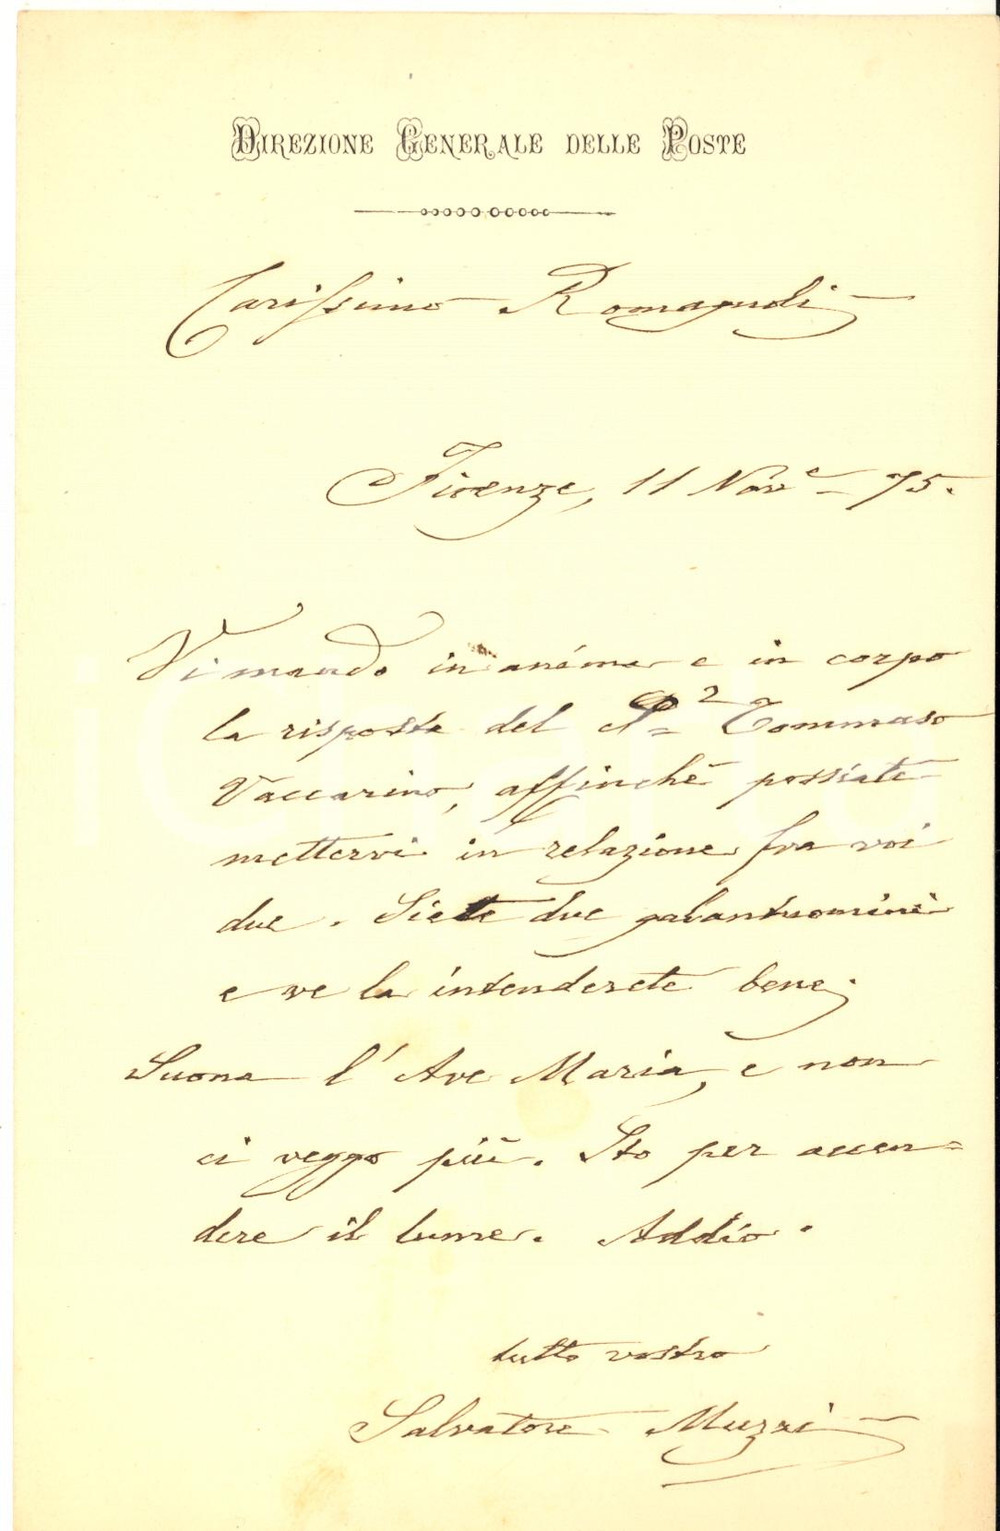 DIREZIONE GENERALE DELLE POSTE
Carissimo Romagnoli
Firenze, 11 Nov.e - 75.
Vi mando in anima e in corpo
la risposta del Tommaso
Vaccarino, affinché possiate
mettervi in relazione fra voi
due. Siete due galantuomini
e ve la intenderete bene.
Suona l'Ave Maria, e non
ci veggo più. Sto per accen=
dere il lume. Addio.
tutto vostro
Salvatore Muzzi